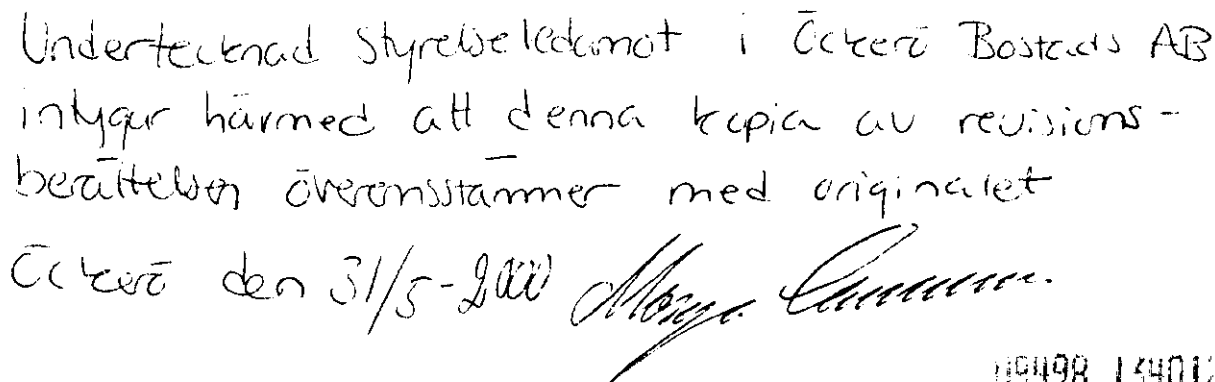 Undertecknad styrelseledamot i Öckerö Bostads AB
intygar härmed att denna kopia av revisions-
berättelsen överensstämmer med originalet
Öckerö den 31/5-2000